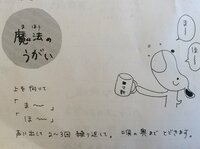 まほう
魔法の
うがい
上を向いて
「ま～」
「ほ～」
声に出して 2～3回 繰り返して。 喉の奥まで とどきます。
ま～
ほ～